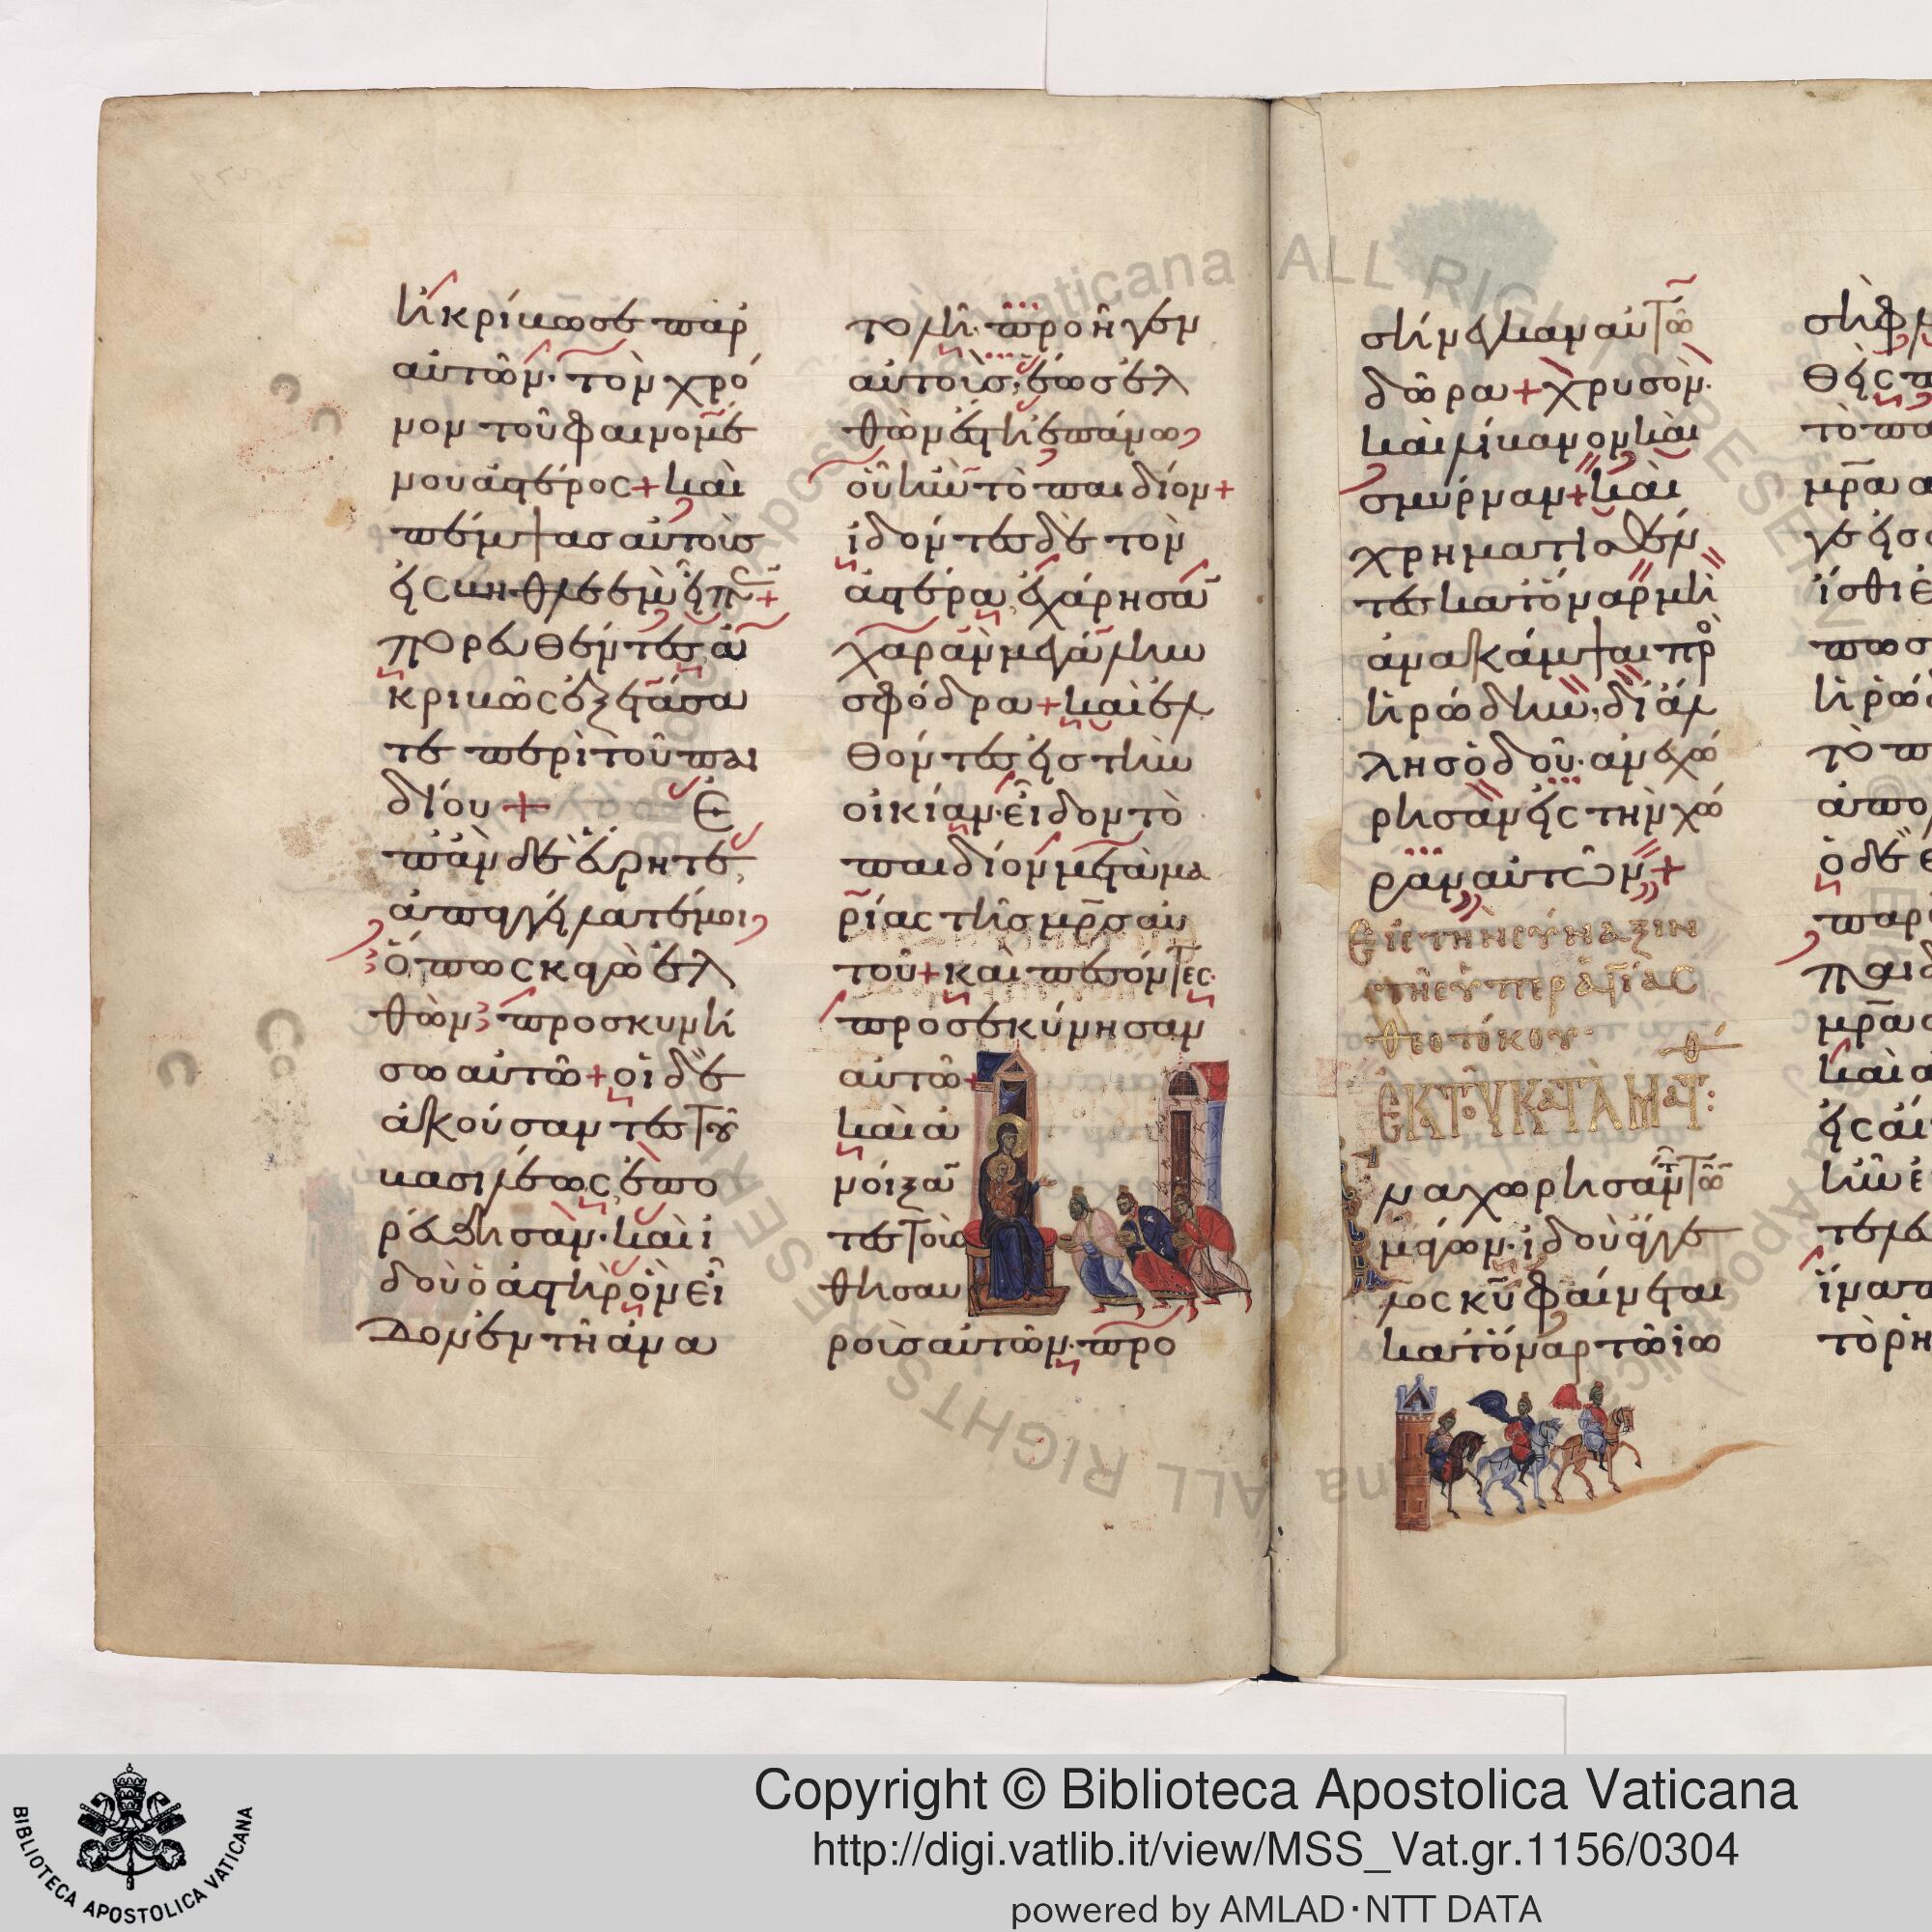 ηκρίβωσε παρ
αὐτῶν· τὸν χρό
νον τοῦ φαινομέ
νου ἀστέρος+ καὶ
πέμψας αὐτοὺς
εἰς βηθλεὲμ εἶπ+
πορευθέντες ἀ
κριβῶς ἐξετάσα
τε περὶ τοῦ παι
δίου+ Ἐ
πὰν δὲ εὕρητε,
ἀπαγγείλατέ μοι,
ὅπως κἀγὼ ἐλ
θὼν προσκυνή
σω αὐτῶ+ οἱ δὲ
ἀκούσαντες τοῦ
βασιλέως, ἐπο
ρεύθησαν· καὶ ἰ
δοὺ ὁ ἀστὴρ ὃν εἶ
δον ἐν τῆ ἀνα
τολῆ· προῆγεν
αὐτοὺς, ἕως ἐλ
θὼν ἔστη ἐπάνω,
οὗ ἦν τὸ παιδίον+
ἰδόντες δὲ τὸν
ἀστέρα, ἐχάρησα̅
χαρὰν μεγάλην
σφόδρα+ καὶ ἐλ
θόντες εἰς τὴν
οἰκίαν· εἶδον τὸ
παιδίον μετὰ μα
ρίας τῆς μρ̅ς αὐ
τοῦ+ καὶ πεσόντες·
προσεκύνησαν
αὐτῶ+
καὶ ἀ
νοίξα̅
τες τοὺς
θησαυ
ροὺς αὐτῶν· προ
σήνεγκαν αὐτῶ
δῶρα+ χρυσὸν·
καὶ λίβανον καὶ
σμύρναν+ καὶ
χρηματισθέν
τες κατόναρ μὴ
ἀνακάμψαι πρὸ
ἡρώδην, δι ἄλ
λης ὁδοῦ· ἀνεχώ
ρησαν εἰς τὴν χώ
ραν αὐτῶν+
Εἰς τὴν σύναξιν
τῆς ὑπεραγίας
θεοτόκου·
ἐκ τοῦ κατὰ Ματ:
ναχωρησάντ τῶν
μάγων· ἰδοὺ ἄγγε
λος κ̅υ̅ φαίνεται
κατόναρ τῶ ἰω
θεὶς π
τὸ πα
μρ̅α α
ἴσθι ἐ
πως
ἡρώδ
τὸ π
ἀπο
ὁ δὲ ἐ
παρ
παιδ
μρ̅α
καὶ α
εἰς αἴ
ἦν ἐ
τελε
ἵνα π
τὸ ῥη
Copyright © Biblioteca Apostolica Vaticana
http://digi.vatlib.it/view/MSS_Vat.gr.1156/0304
powered by AMLAD·NTT DATA
BIBLIOTECA APOSTOLICA VATICANA